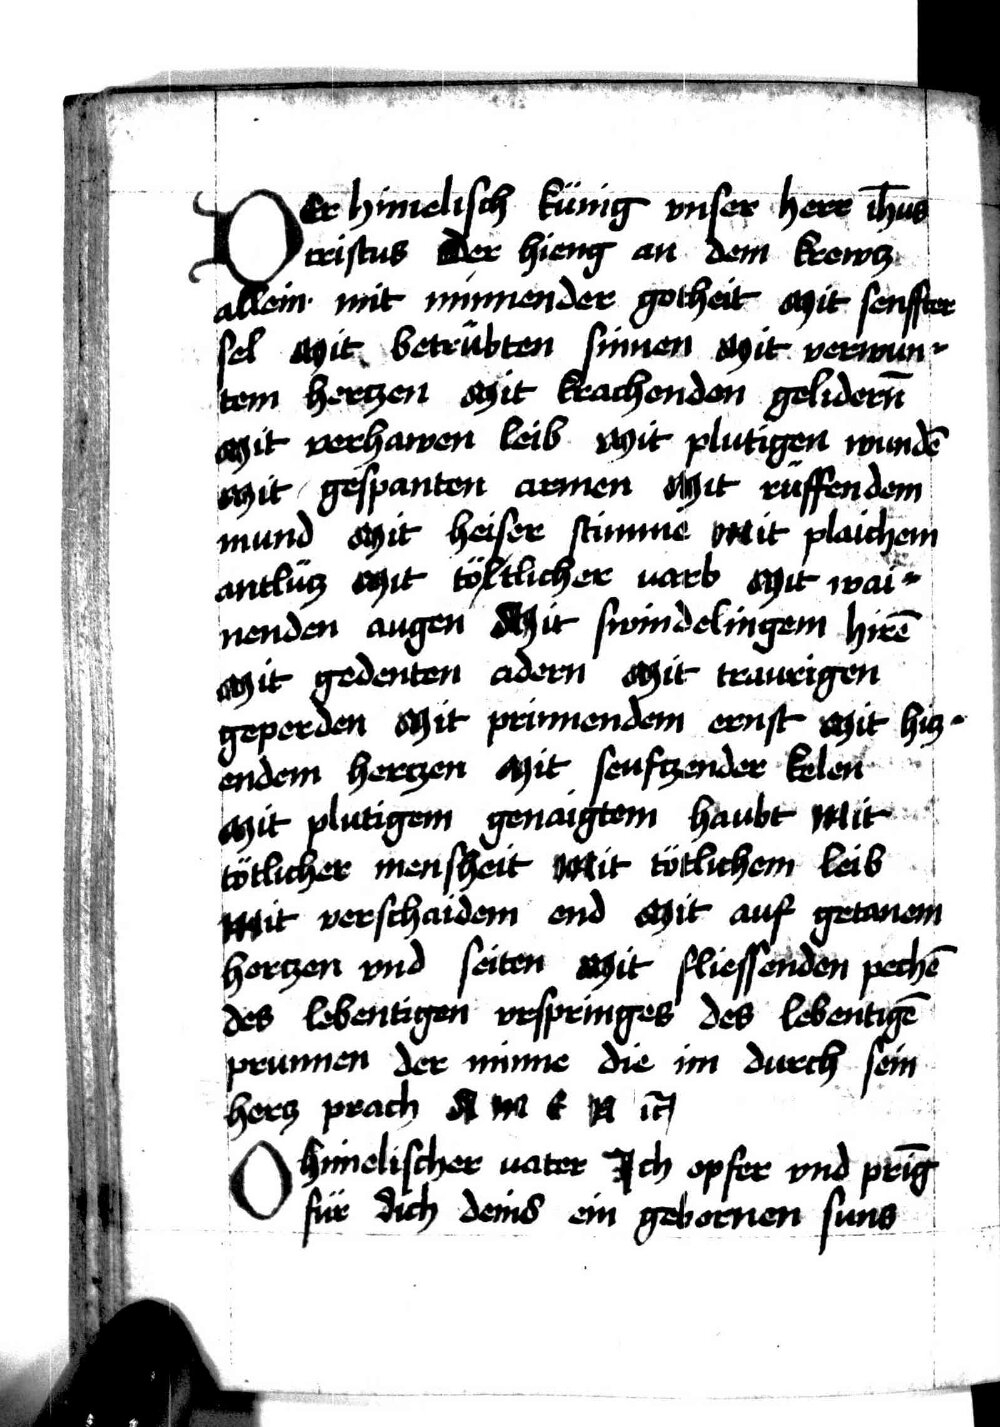 DEr himelisch künig vnser herr ih̅us
cristus Der hieng an dem krewtz
allein mit minnender gotheit Mit senffter
sel Mit betrübten sinnen Mit verwun-
tem hertzen Mit krachenden gelidern̅
Mit verhawen leib Mit plutigen wunde̅
Mit gespanten armen Mit rüffendem
mund Mit heiser stimme Mit plaichem
antlütz Mit tötlicher varb Mit wai-
nenden augen Mit swindelingem hire̅
Mit gedenten adern Mit traurigen
geperden Mit prinnendem ernst Mit hitz-
endem hertzen Mit seuftzender kelen
Mit plutigem genaigtem haubt Mit
tötlicher mensheit Mit tötlichem leib
Mit verschaidem end Mit auf getanem
hertzen vnd seiten Mit fliessenden peche̅
des lebentigen vrspringes des lebentige̅
prunnen der minne die im durch sein
hertz prach A M E N
O himelischer vater Ich opfer vnd pri̅g
für dich deins ein gebornen suns